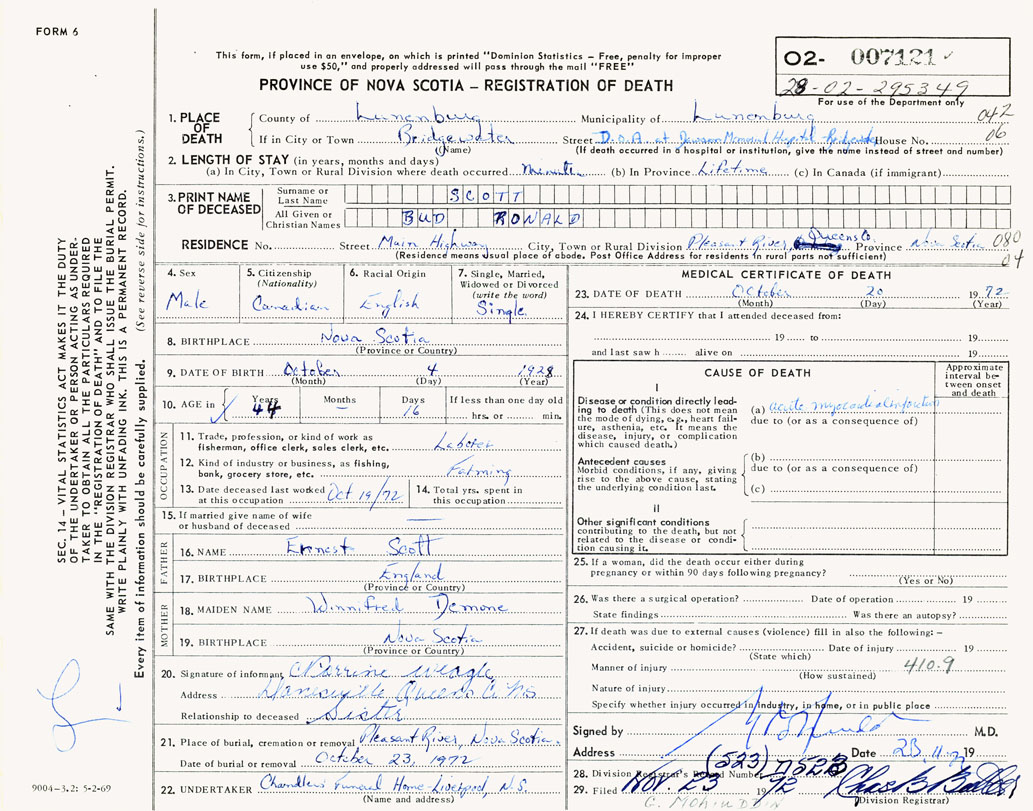 FORM 6
This form, if placed in an envelope, on which is printed "Dominion Statistics – Free, penalty for improper
use $50," and properly addressed will pass through the mail "FREE"
PROVINCE OF NOVA SCOTIA – REGISTRATION OF DEATH
02- 007121
28-02-295349
For use of the Department only
1. PLACE OF DEATH
County of Lunenburg Municipality of Lunenburg 042
If in City or Town Bridgewater Street D.O.A. at Dawson Memorial Hospital - Bridgewater House No. 06
(Name) (If death occurred in a hospital or institution, give the name instead of street and number)
2. LENGTH OF STAY (in years, months and days)
(a) In City, Town or Rural Division where death occurred Minutes (b) In Province Lifetime (c) In Canada (if immigrant)
3. PRINT NAME OF DECEASED
Surname or Last Name SCOTT
All Given or Christian Names BUD RONALD
RESIDENCE No. Street Main Highway City, Town or Rural Division Pleasant River, Queens Co. Province Nova Scotia 080
(Residence means usual place of abode. Post Office Address for residents in rural parts not sufficient) 04
4. Sex
Male
5. Citizenship (Nationality)
Canadian
6. Racial Origin
English
7. Single, Married, Widowed or Divorced (write the word)
Single
8. BIRTHPLACE Nova Scotia
(Province or Country)
9. DATE OF BIRTH October 4 1928
(Month) (Day) (Year)
10. AGE in Years Months Days If less than one day old
44 — 16 hrs. or min.
OCCUPATION
11. Trade, profession, or kind of work as
fisherman, office clerk, sales clerk, etc. Laborer
12. Kind of industry or business, as fishing,
bank, grocery store, etc. Farming
13. Date deceased last worked at this occupation Oct 19/72
14. Total yrs. spent in this occupation
15. If married give name of wife
or husband of deceased —
FATHER
16. NAME Ernest Scott
17. BIRTHPLACE England
(Province or Country)
MOTHER
18. MAIDEN NAME Winnifred Demone
19. BIRTHPLACE Nova Scotia
(Province or Country)
20. Signature of informant Weagle
Address Queens Co NS
Relationship to deceased Sister
21. Place of burial, cremation or removal Pleasant River, Nova Scotia.
Date of burial or removal October 23, 1972
22. UNDERTAKER Chandlers Funeral Home - Liverpool, N.S.
(Name and address)
MEDICAL CERTIFICATE OF DEATH
23. DATE OF DEATH October 20 1972
(Month) (Day) (Year)
24. I HEREBY CERTIFY that I attended deceased from:
19 to 19
and last saw h alive on 19
CAUSE OF DEATH
Approximate interval between onset and death
I
Disease or condition directly leading to death (This does not mean the mode of dying, e.g., heart failure, asthenia, etc. It means the disease, injury, or complication which caused death.)
(a) acute myocardial infarction
due to (or as a consequence of)
Antecedent causes
Morbid conditions, if any, giving rise to the above cause, stating the underlying condition last.
(b)
due to (or as a consequence of)
(c)
II
Other significant conditions
contributing to the death, but not related to the disease or condition causing it.
25. If a woman, did the death occur either during
pregnancy or within 90 days following pregnancy?
(Yes or No)
26. Was there a surgical operation? Date of operation 19
State findings Was there an autopsy?
27. If death was due to external causes (violence) fill in also the following: –
Accident, suicide or homicide? Date of injury 19
(State which)
Manner of injury 410.9
(How sustained)
Nature of injury
Specify whether injury occurred in industry, in home, or in public place
Signed by M.D.
Address Date 23 11 72 19
28. Division Registrar's Record Number (523) 523
29. Filed Nov. 23 1972
(Division Registrar)
C. MOHIUDDIN
SEC. 14 – VITAL STATISTICS ACT MAKES IT THE DUTY
OF THE UNDERTAKER OR PERSON ACTING AS UNDER-
TAKER TO OBTAIN ALL THE PARTICULARS REQUIRED
IN THE "REGISTRATION OF DEATH" AND TO FILE THE
SAME WITH THE DIVISION REGISTRAR WHO SHALL ISSUE THE BURIAL PERMIT.
WRITE PLAINLY WITH UNFADING INK. THIS IS A PERMANENT RECORD.
Every item of information should be carefully supplied. (See reverse side for instructions.)
9004-3.2: 5-2-69